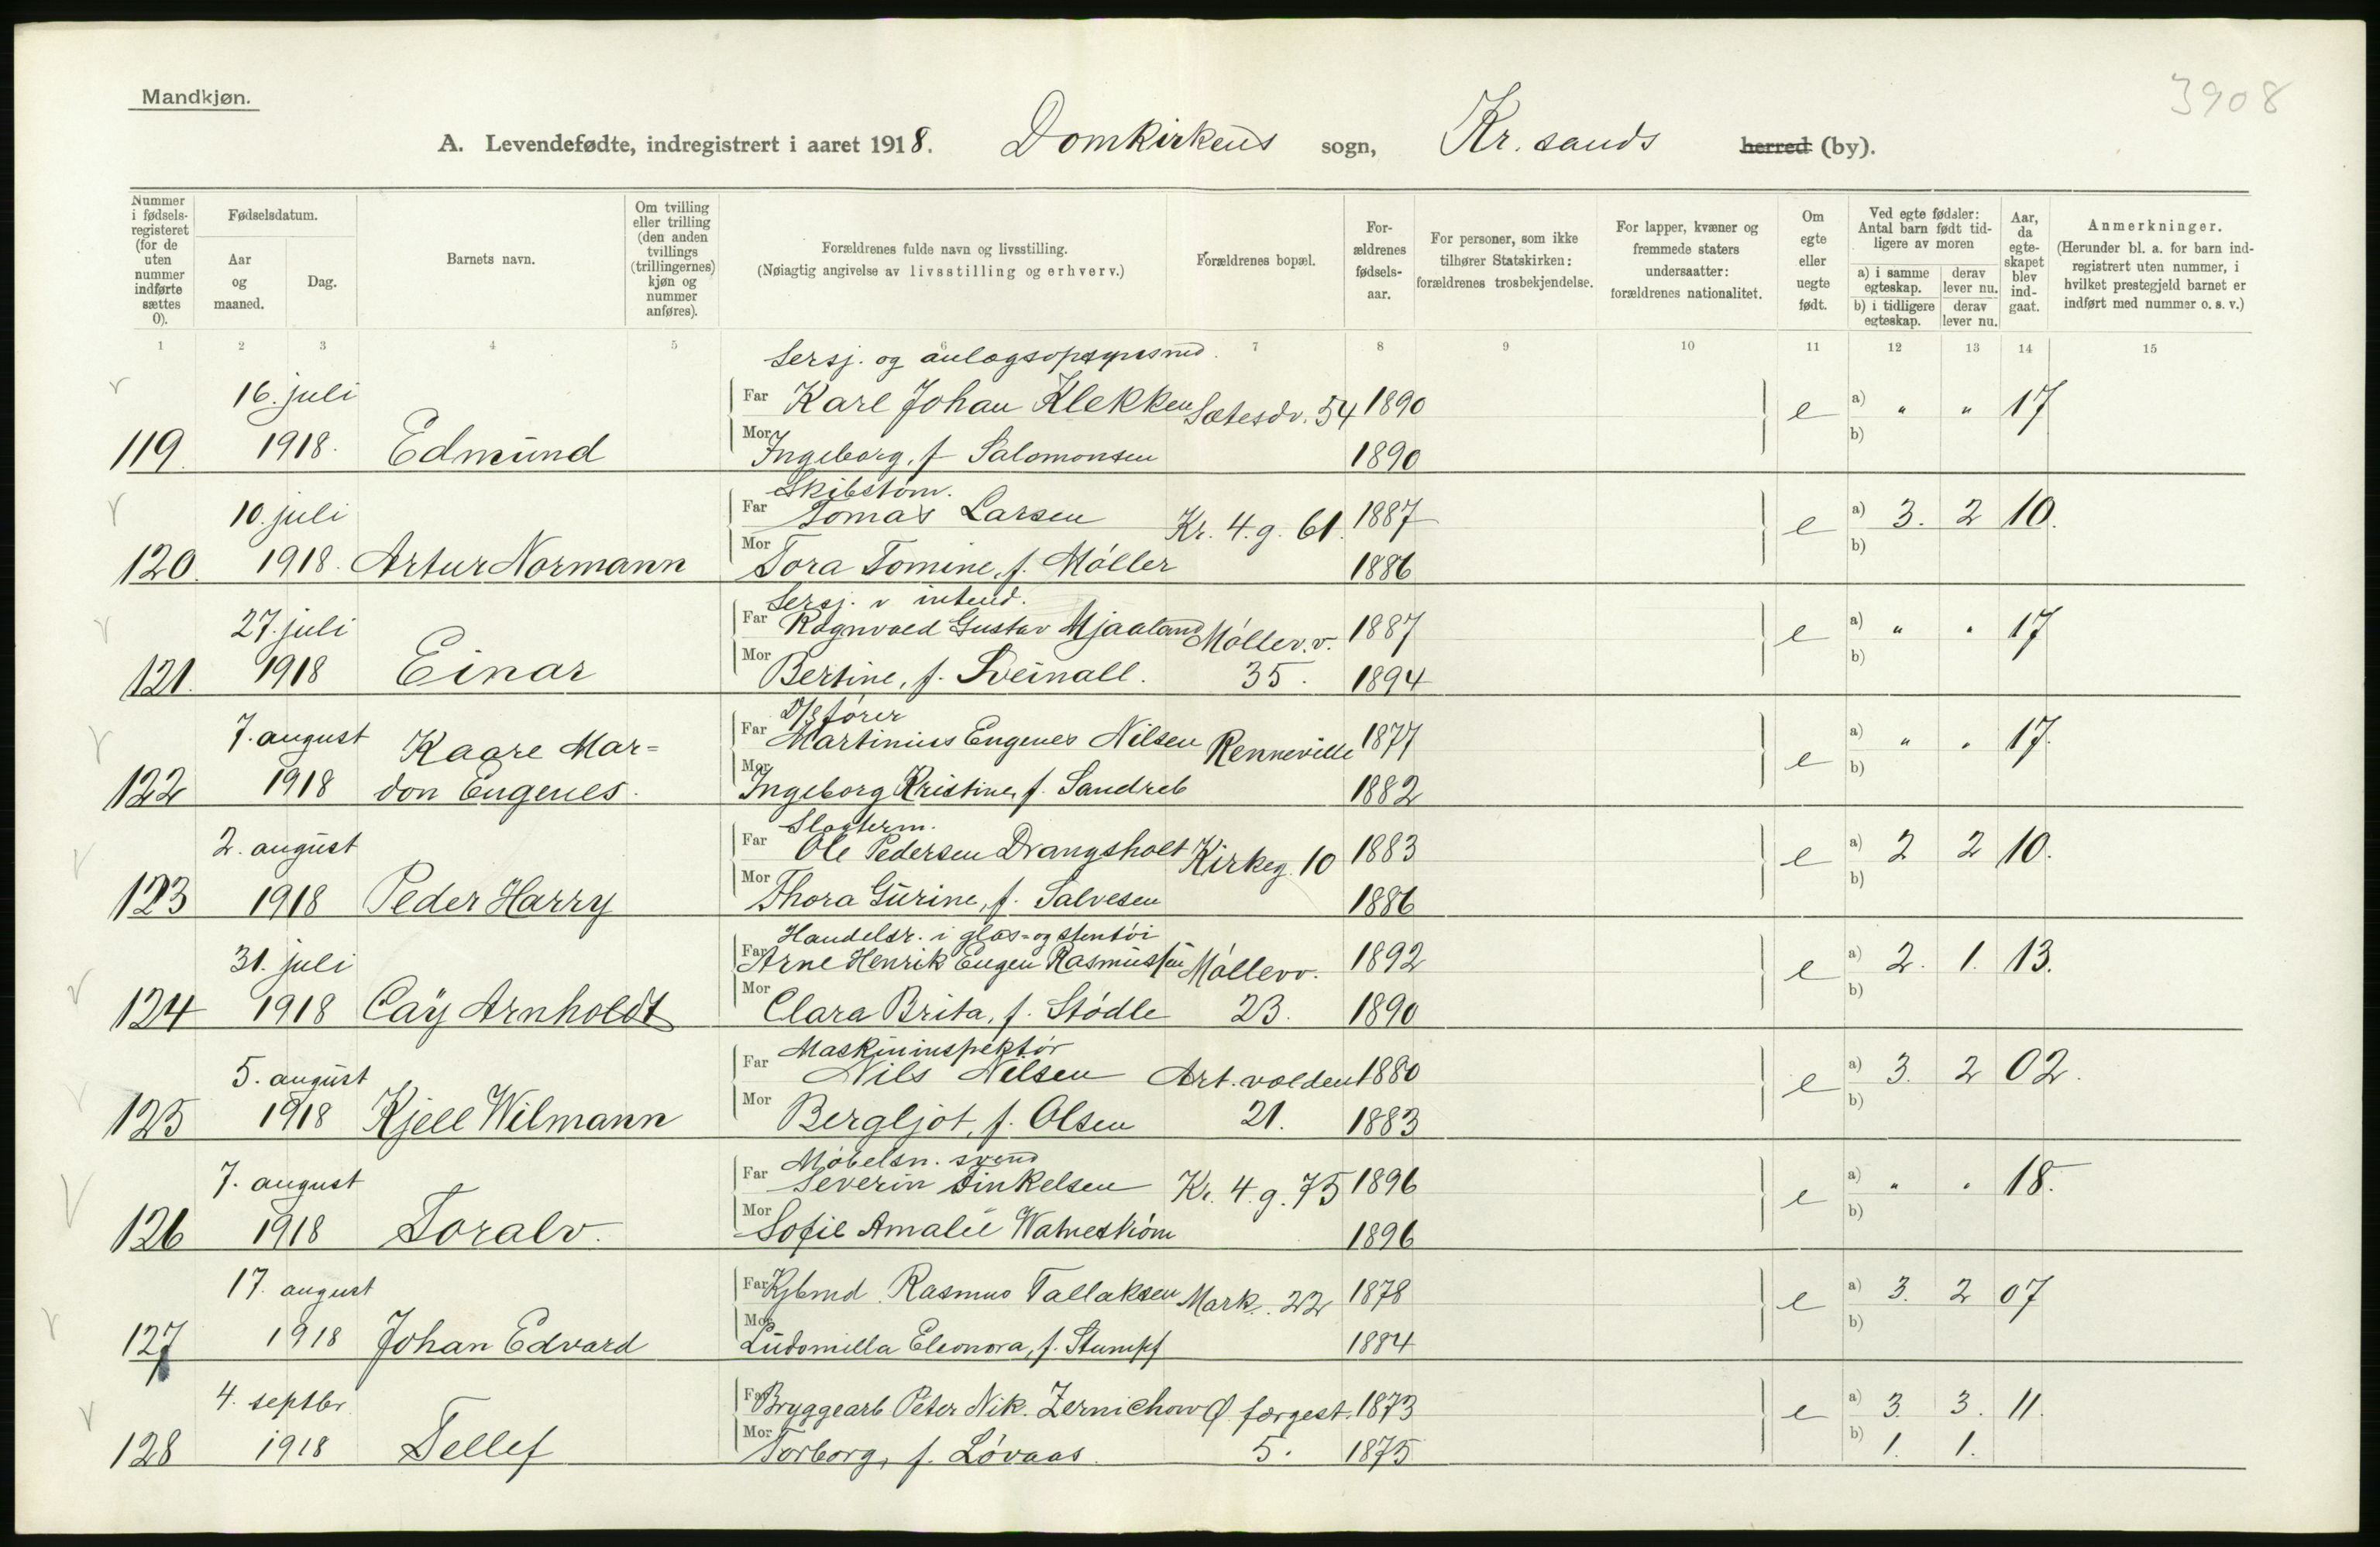 Mandkjøn.
3908
A. Levendefødte, indregistrert i aaret 1918. Domkirkens sogn, Kr. sands herred (by).
Nummer i fødsels-registeret (for de uten nummer indførte sættes 0).
Fødselsdatum.
Aar og maaned.
Dag.
Barnets navn.
Om tvilling eller trilling (den anden tvillings (trillingernes) kjøn og nummer anføres).
Forældrenes fulde navn og livsstilling.
(Nøiagtig angivelse av livsstilling og erhverv.)
Forældrenes bopæl.
For-ældrenes fødsels-aar.
For personer, som ikke tilhører Statskirken: forældrenes trosbekjendelse.
For lapper, kvæner og fremmede staters undersaatter: forældrenes nationalitet.
Om egte eller uegte født.
Ved egte fødsler: Antal barn født tid-ligere av moren
a) i samme egteskap.
derav lever nu.
b) i tidligere egteskap.
derav lever nu.
Aar, da egte-skapet blev ind-gaat.
Anmerkninger.
(Herunder bl. a. for barn ind-registrert uten nummer, i hvilket prestegjeld barnet er indført med nummer o. s. v.)
1 2 3 4 5 6 7 8 9 10 11 12 13 14 15
Sersj. og
16. juli Far Karl Johan Klekken Sætesdv. 54 1890 e a) " " 17
119. 1918. Edmund Mor Ingeborg, f. Salomonsen 1890 b)
Skibstøm.
10. juli Far Tomas Larsen Kr. 4. g. 61. 1887 e a) 3. 2 10.
120. 1918. Artur Normann Mor Tora Tomine, f. Møller 1886 b)
Sersj. v intend.
27. juli Far Ragnvald Gustav Mjaaland Møllev. v. 1887 e a) " " 17
121. 1918 Einar Mor Bertine, f. Sveinall. 35. 1894 b)
D/S fører
7. august Kaare Mar= Far Martinius Eugenes Nilsen Renneville 1877 e a) " " 17.
122 1918 don Eugenes. Mor Ingeborg Kristine, f. Sandreb 1882 b)
Slagterm.
2. august Far Ole Pedersen Drangsholt Kirkeg. 10 1883 e a) 2 2 10.
123 1918 Peder Harry Mor Thora Gurine, f. Salvesen 1886 b)
Handelsr. i glas= og stentøi
31. juli Far Arne Henrik Eugen Rasmussen Møllevv. 1892 e a) 2. 1. 13.
124 1918 Cay Arnholdt Mor Clara Brita, f. Stødle 23. 1890 b)
Maskininspektør
5. august Far Nils Nilsen Art. volden 1880 e a) 3. 2 02.
125 1918 Kjell Wilmann Mor Bergljot, f. Olsen 21. 1883 b)
Møbelsn. svend
7. august Far Severin Finkelsen Kr. 4. g. 75 1896 e a) " " 18.
126 1918 Toralv. Mor Sofie Amalie Watnestrøm 1896 b)
17. august Far Kjbmd. Rasmus Tallaksen Mark. 22 1878 e a) 3. 2 07
127 1918 Johan Edvard Mor Ludomilla Eleonora, f. Stumpf 1884 b)
4. septbr. Far Bryggearb Peter Nik. Zernichow Ø. færgest. 1873 e a) 3. 3. 11.
128 1918 Tellef Mor Torborg, f. Løvaas. 5. 1875 b) 1. 1.